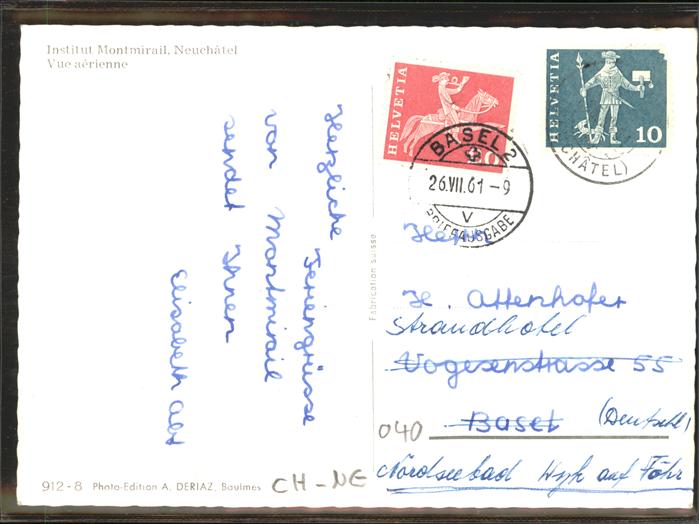 Institut Montmirail, Neuchâtel
Vue aérienne
Herzliche Feriengrüsse
von Montmirail
sendet Ihnen
Elisabeth Abt
912-8 Photo-Edition A. DERIAZ, Baulmes
CH-NE
Fabrication Suisse
HELVETIA
HELVETIA
10
BASEL 2
26.VII.61-9
V
BRIEFAUSGABE
CHÂTEL)
Herrn
H. Attenhofer
Strandhotel
Vogesenstrasse 55
Basel (Deutschl.)
040
Nordseebad Wyk auf Föhr